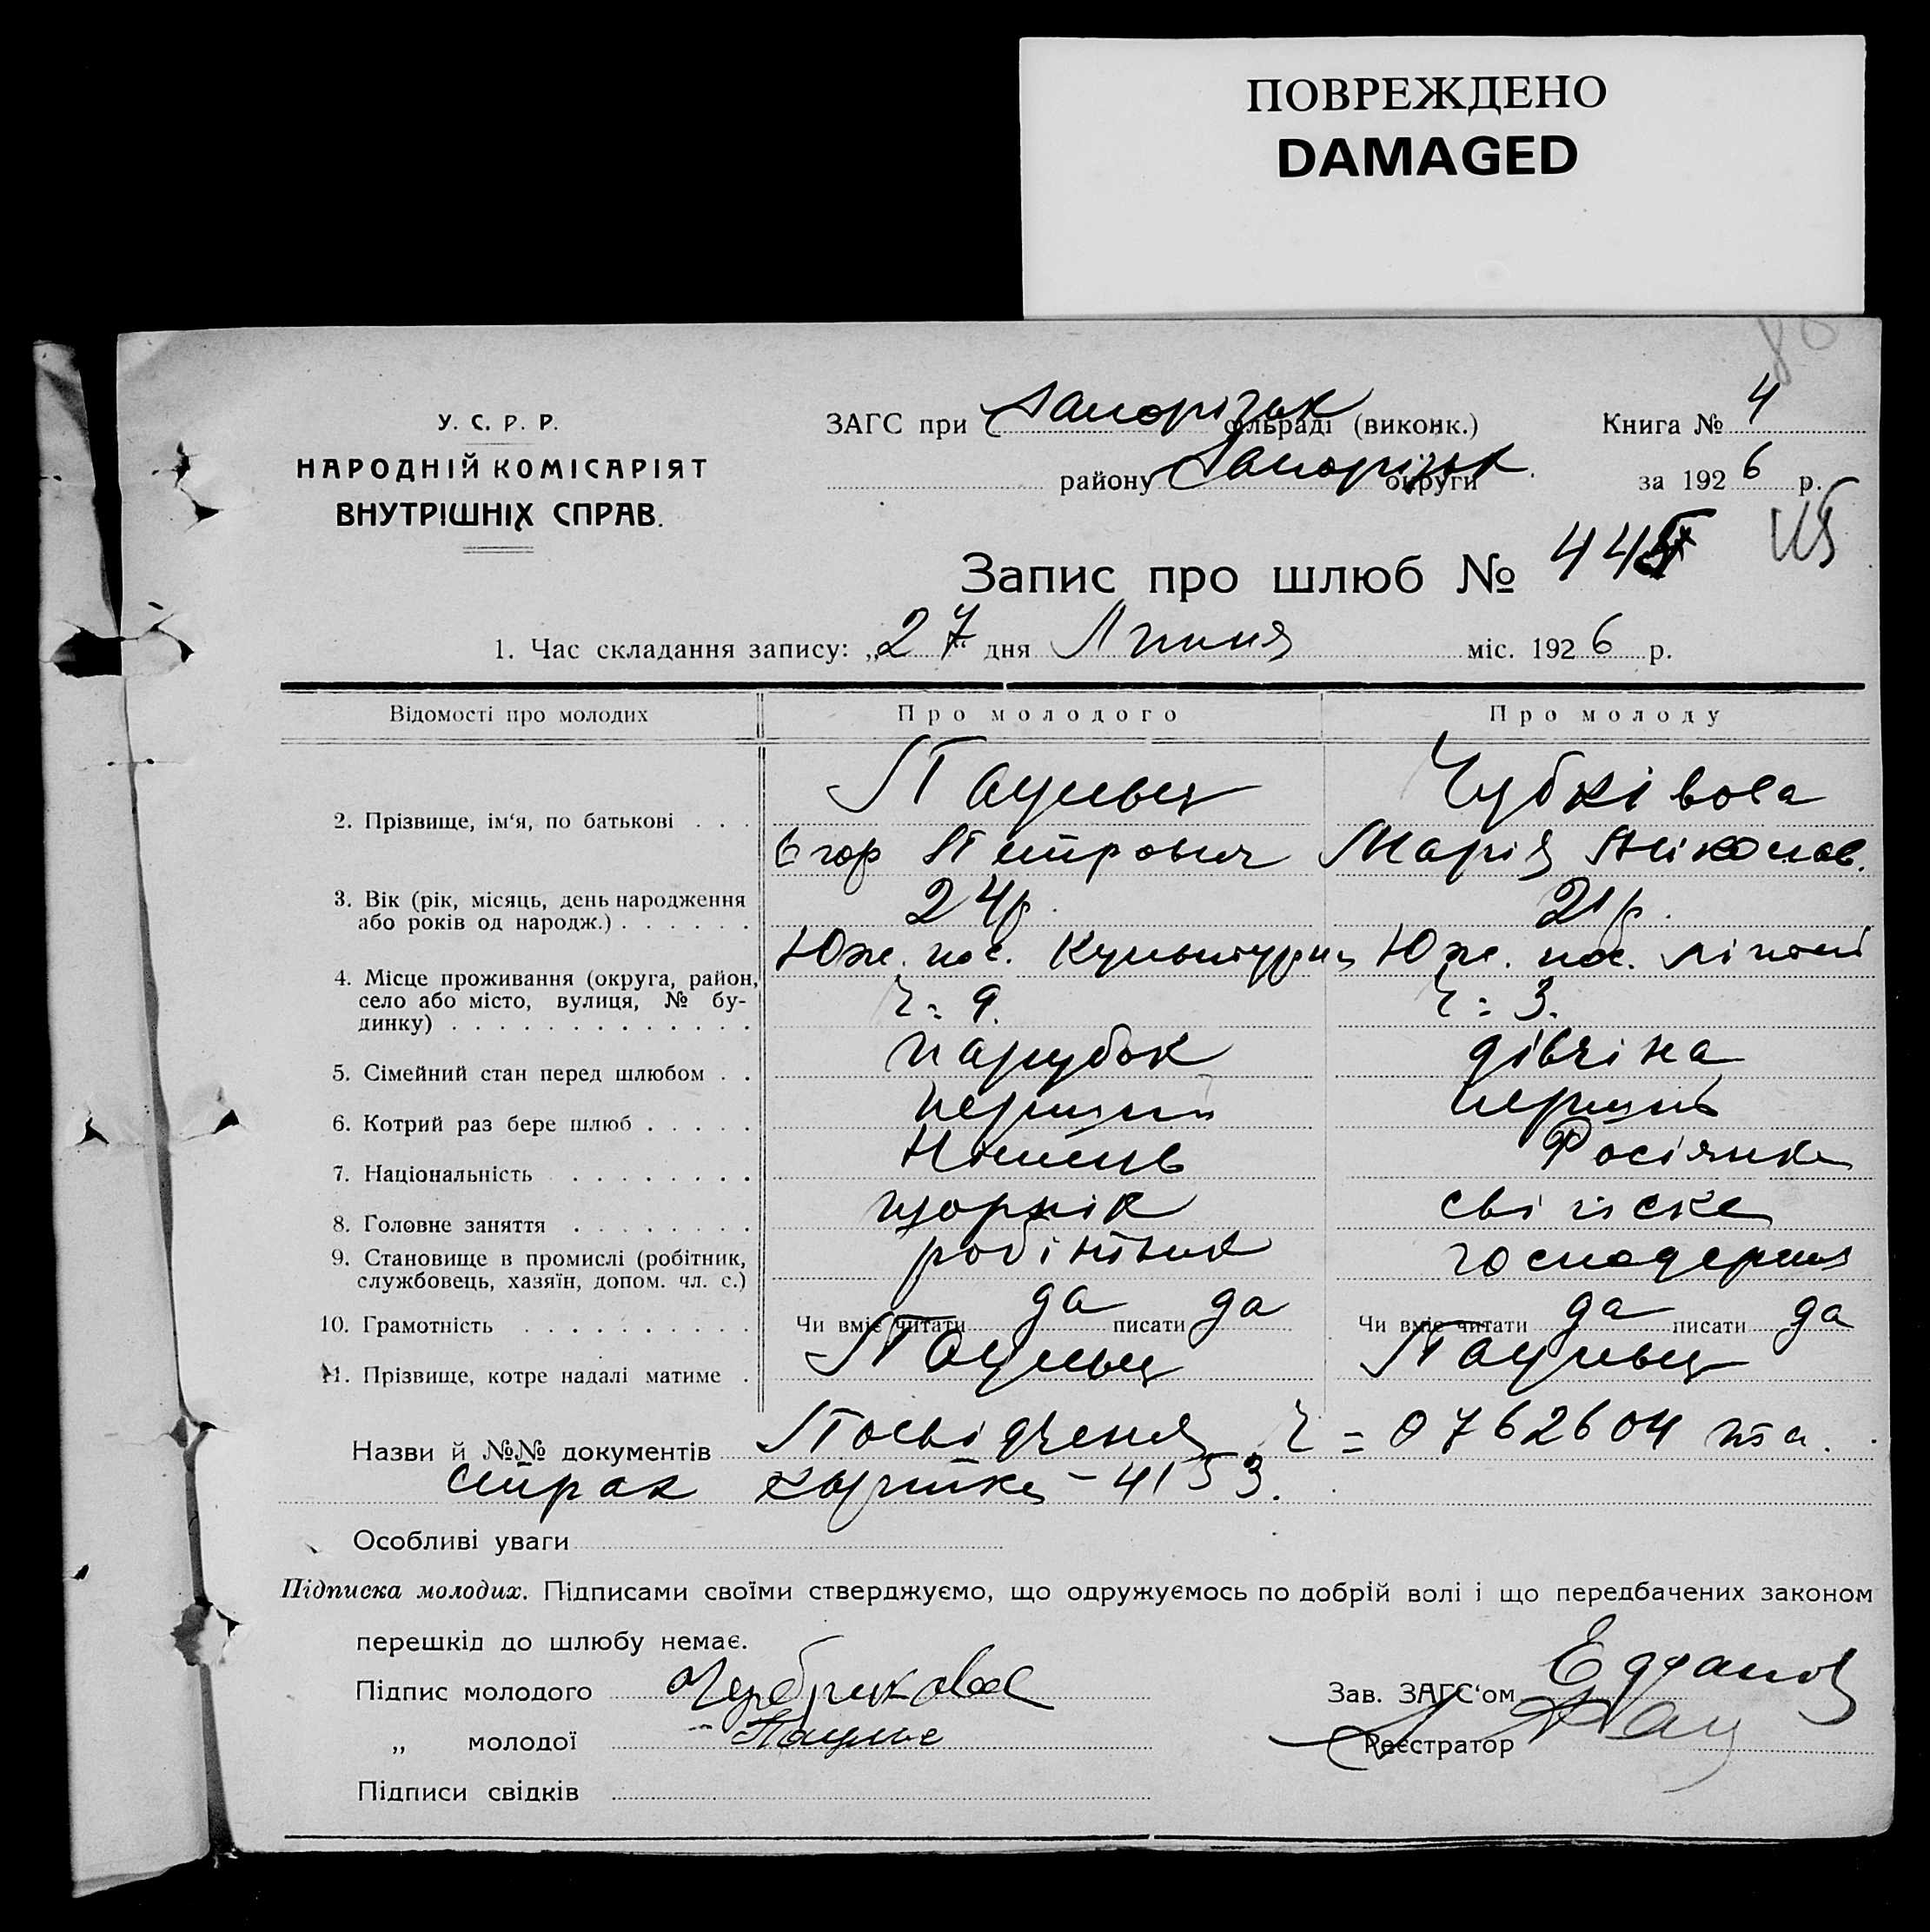 ПОВРЕЖДЕНО
DAMAGED
У. С. Р. Р.
НАРОДНІЙ КОМІСАРІЯТ
ВНУТРІШНІХ СПРАВ.
ЗАГС при Запорізьк сільраді (виконк.)
району Запорізьк округи
Книга № 4
за 1926 р.
Запис про шлюб № 445
1. Час складання запису: „27" дня Липня міс. 1926 р.
Відомості про молодих Про молодого Про молоду
2. Прізвище, ім'я, по батькові . . .
Паульц
Егор Петрович
Марія Ніколав.
3. Вік (рік, місяць, день народження
або років од народж.) . . . . . .
24 р. 21 р.
4. Місце проживання (округа, район,
село або місто, вулиця, № бу-
динку) . . . . . . . . . . . .
Юж. пос. Культурна
ч = 9.
Юж. пос.
ч = 3.
5. Сімейний стан перед шлюбом . . парубок дівчіна
6. Котрий раз бере шлюб . . . . . перший перший
7. Національність . . . . . . . . Німець Росіянка
8. Головне заняття . . . . . . . .
9. Становище в промислі (робітник,
службовець, хазяїн, допом. чл. с.)
робітник господерня
10. Грамотність . . . . . . . . . . Чи вміє читати да писати да Чи вміє читати да писати да
11. Прізвище, котре надалі матиме . Паульц Паульц
Назви й №№ документів Посвідченя ч = 0762604 та.
страх картка – 4153.
Особливі уваги
Підписка молодих. Підписами своїми стверджуємо, що одружуємось по добрій волі і що передбачених законом
перешкід до шлюбу немає.
Підпис молодого
„ молодої
Підписи свідків
Зав. ЗАГС'ом
Реєстратор